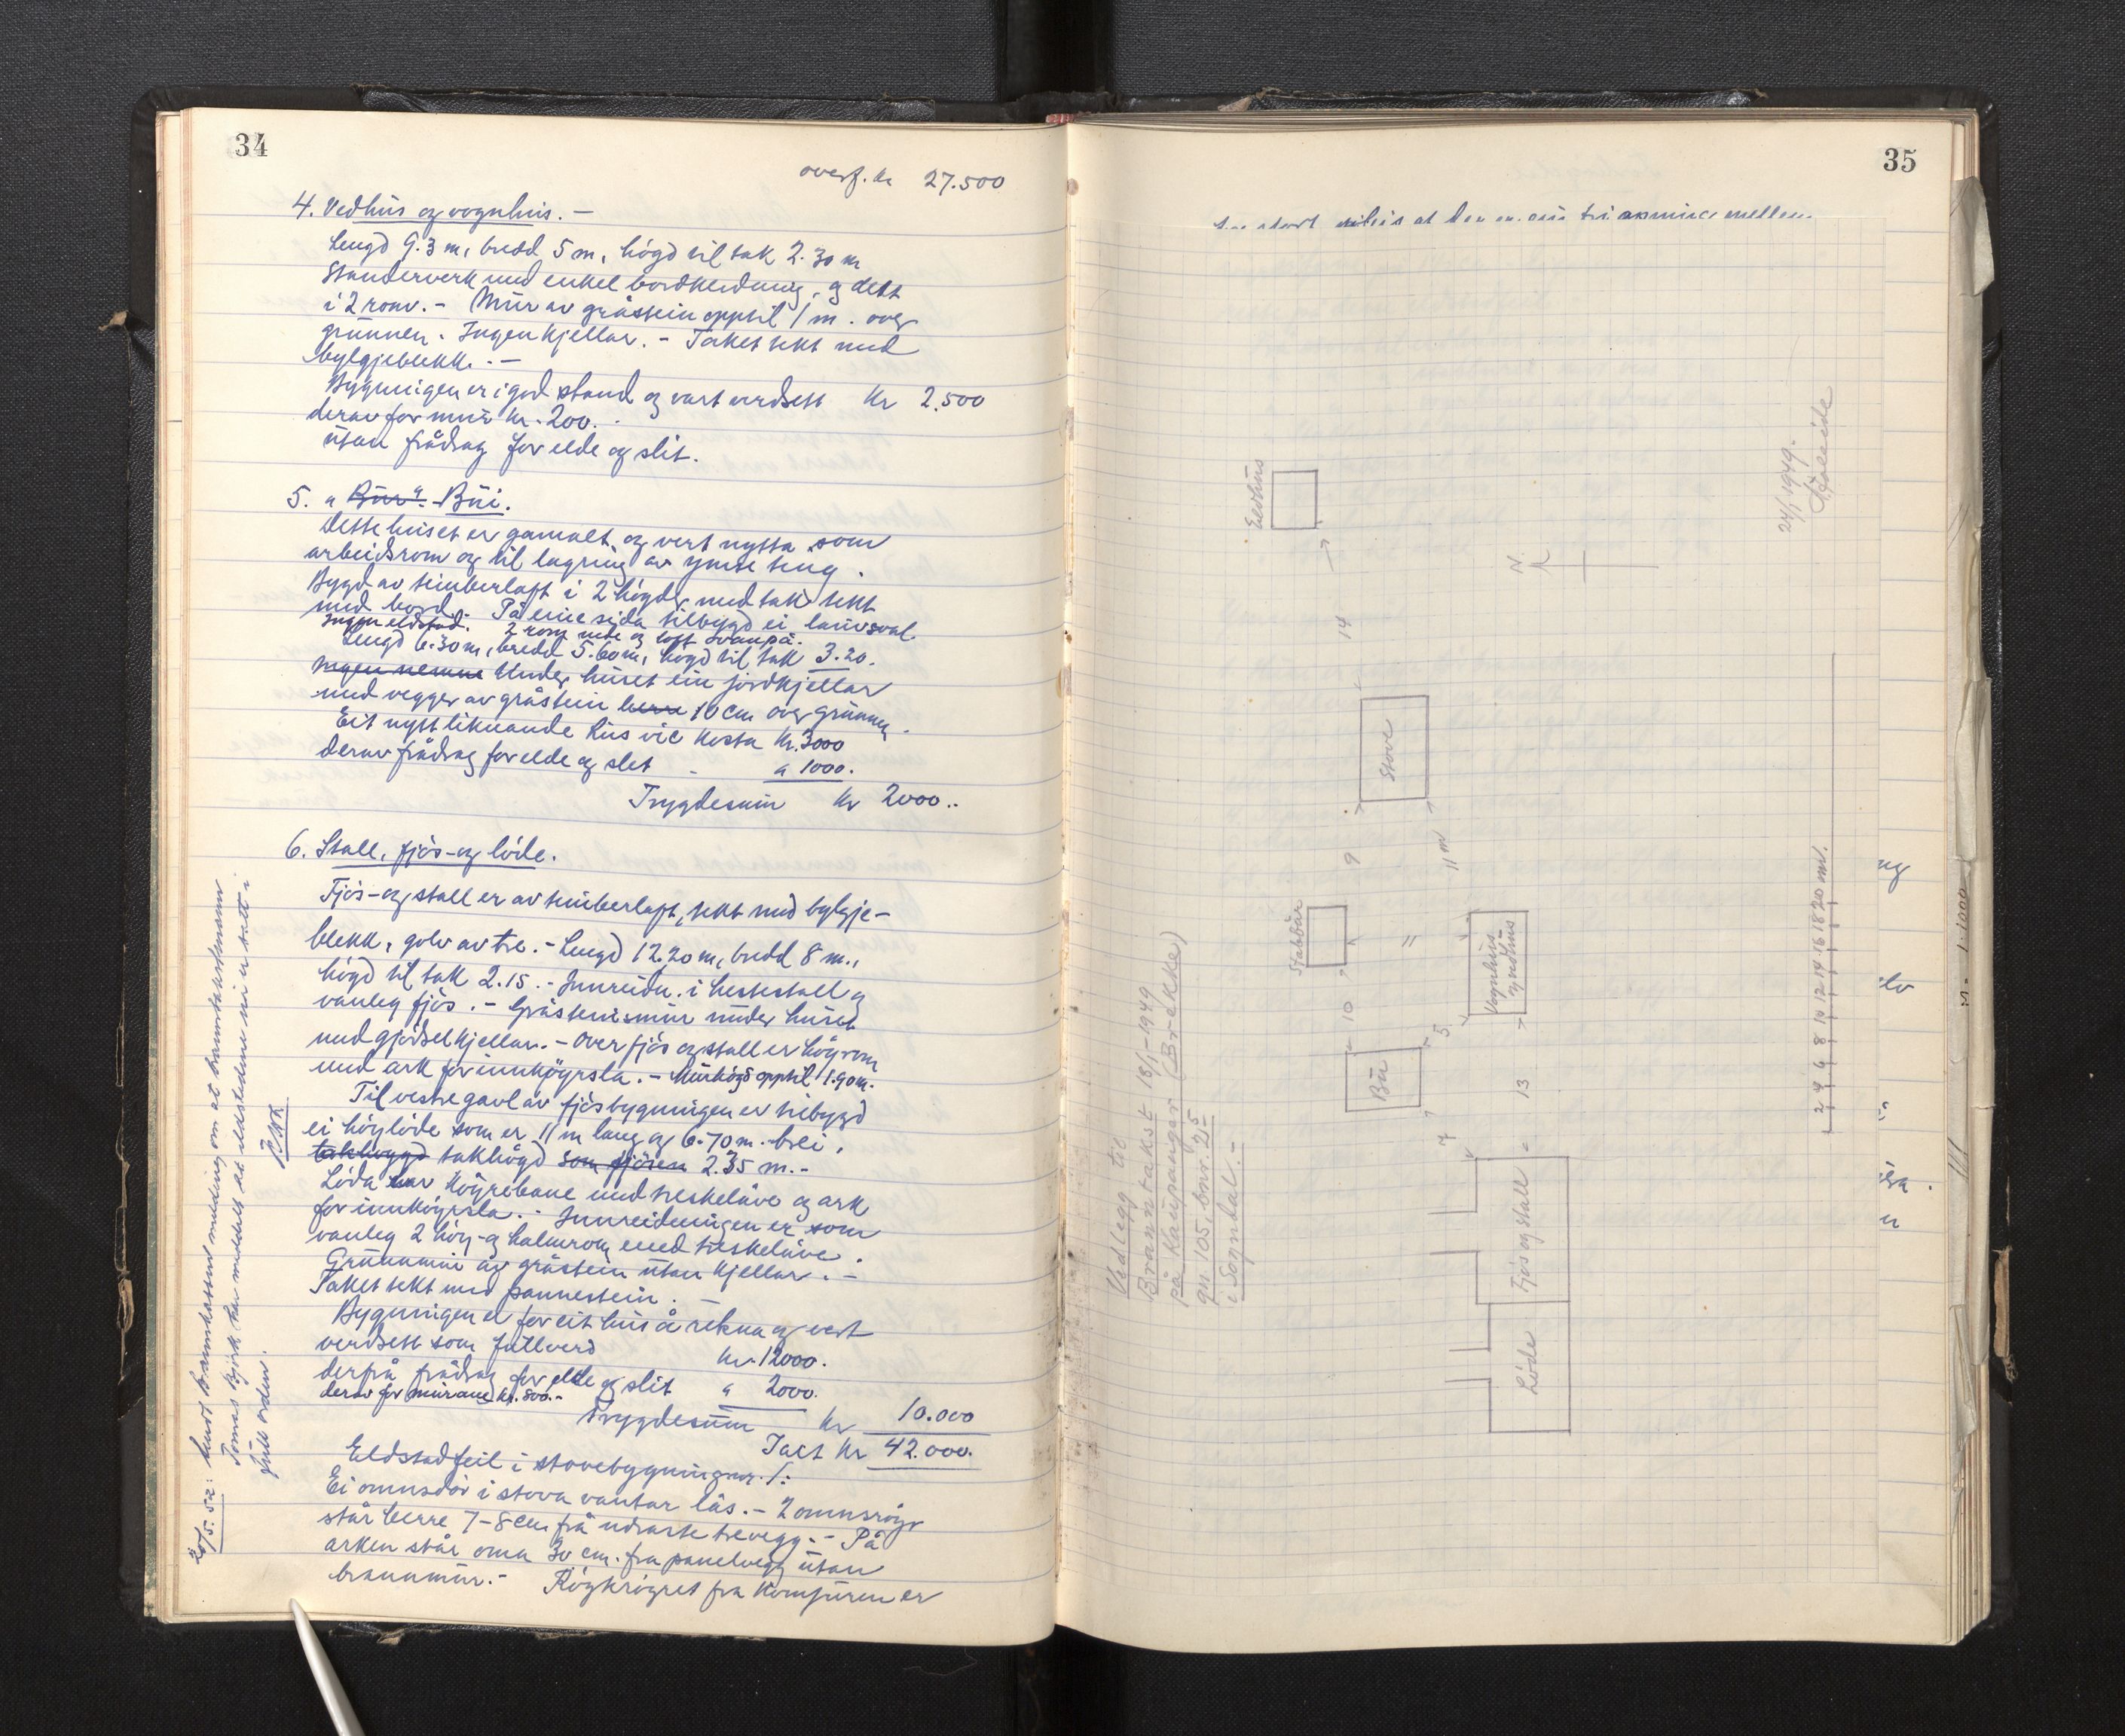 34
overf. kr 27.500
4. Vedhus og vognhus. –
Lengd 9.3 m, bredd 5 m, högd til tak 2.30 m
Standerverk med enkel bordkledning, og delt
i 2 rom. – Mur av gråstein opptil 1 m. over
grunnen. Ingen kjellar. – Taket tekt med
bylgjeblekk. –
Bygningen er i god stand og vart verdsett Kr 2.500
derav for mur kr. 200.
utan frådrag for elde og slit.
5. " Bur". Bui.
Dette huset er gamalt og vert nytta som
arbeidsrom og til lagring av ymse ting.
Bygd av timberlaft i 2 högder med tak tekt
med bord. På eine sida tilbygd ei lauvsval
Ingen eldstad. 2 rom nede og loft ovanpå.
Lengd 6.30 m, bredd 5.60 m, högd til tak 3.20.
Ingen Under huset ein jordkjellar
med vegger av gråstein berre 10 cm over grunnen.
Eit nytt liknande hus vil kosta Kr. 3000
derav frådrag for elde og slit " 1000.
Trygdesum Kr 2000..
6. Stall, fjös- og löde.
Fjös- og stall er av timberlaft, tekt med bylgje-
blekk, golv av tre. – Lengd 12.20 m, bredd 8 m.,
högd til tak 2.15. – Innreidn. i hestestall og
vanleg fjös. – Gråsteinsmur under huset
med gjödselkjellar. – Over fjös og stall er höyrom
med ark for innköyrsla. – Murhögd opptil 1.90 m.
Til vestre gavl av fjösbygningen er tilbygd
ei höylöde som er 11 m lang og 6.70 m. brei,
takhøgd takhögd som fjösen 2.35 m. –
Löda har köyrebane med treskelåve og ark
for innköyrsla. – Innreidningen er som
vanleg 2 höy- og halmrom med treskelåve.
Grunnmur av gråstein utan kjellar. –
Taket tekt med pannestein. –
Bygningen er for eit hus å rekna og vert
verdsett som fullverd kr. 12000.
derfrå frådrag for elde og slit " 2000.
derav for murane kr. 800. –
Trygdesum kr 10.000
Ialt Kr 42.000.
Eldstadfeil i stovebygning nr. 1:
Ei omnsdör i stova vantar lås. – 2 omnsröyr
står berre 7–8 cm frå næraste trevegg. – På
arken står omn 30 cm. fra panelvegg utan
brannmur. – Röykröyret fra komfuren er
20/5.52: Sendt brannkassen melding om at branntakstmann
Tomas Bjørk har meddelt at eldstedene nu er sett i
full orden.
35
Vedlegg til
Branntakst 18/1-1949
på Kaupanger (Brekke)
gn. 105, bnr. 25
i Sogndal. –
Eldhus
14
Stove
9
11 m
Stabbur
Vognhus
10
5
Bu
13
7
Fjös og stall
Löde
N.
24/1 1949.
2 4 6 8 10 12 14 16 18 20 m.
1:1000